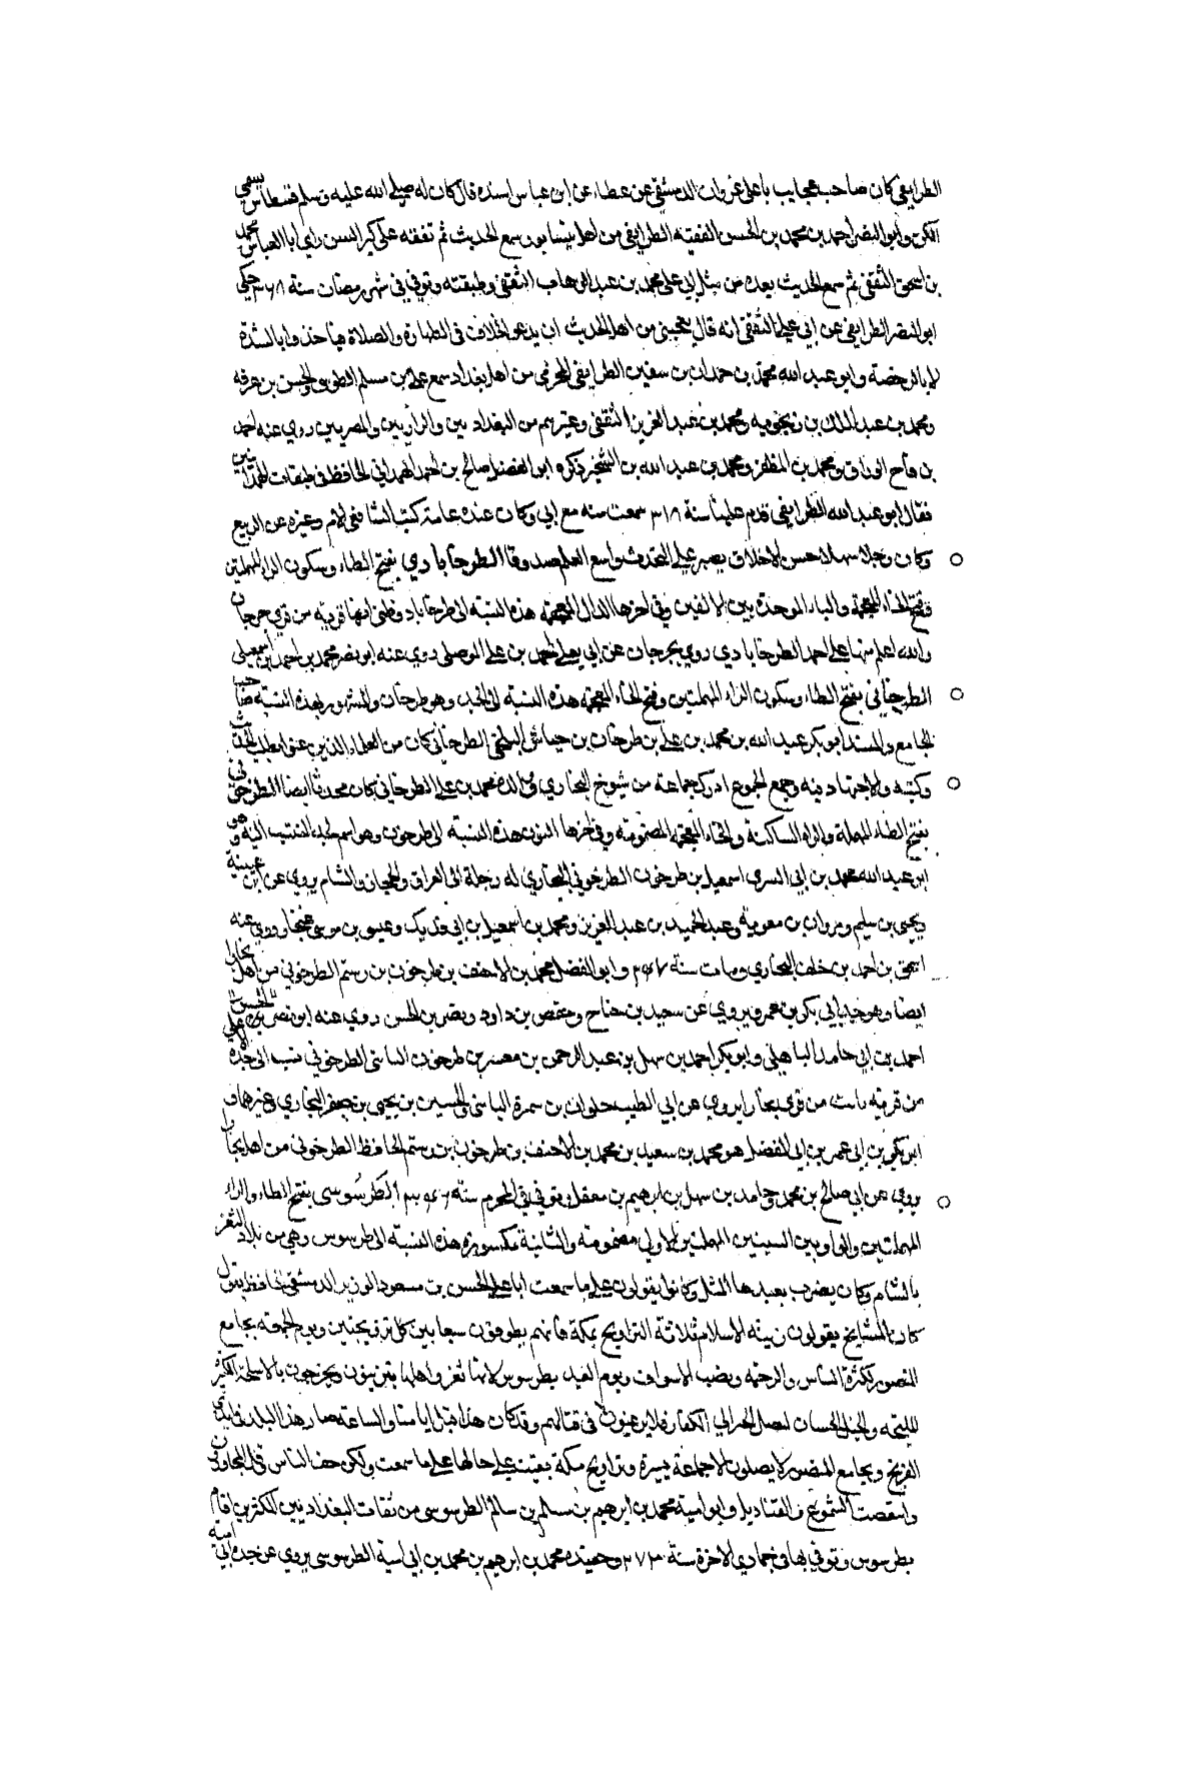 الطرايفي كان صاحب عجايب با على غروان الدمشقي عن عطاء عن ابن عباس اسنده قال كان له صلى الله عليه وسلم فسطاس يسمى
الكن وابو النضر احمد بن محمد بن الحسن الفقيه الطرايفي من اهل نيسابور سمع الحديث ثم تفقه على كبر السن راى ابا العباس محمد
بن اسحق الثقفي ثم سمع الحديث بعده من مثل ابي علي محمد بن عبد الوهاب الثقفي وطبقته وتوفي في شهر رمضان سنة ٣٦٨ حكى
ابو النضر الطرايفي عن ابي علي الثقفي انه قال يعجبني من اهل الحديث ان يدعو الخلاف في الطهارة والصلاة فياخذوا بالشدة
لا بالرخصة وابو عبد الله محمد بن حمدان بن سفين الطرايفي المخرمي من اهل بغداد سمع علي بن مسلم الطوسي والحسن بن عرفه
ومحمد بن عبد الملك بن زنجويه ومحمد بن عبد العزيز الثقفي وغيرهم من البغداديين والرازيين والمصريين روى عنه احمد
بن قاج الوراق ومحمد بن المظفر ومحمد بن عبد الله بن الشخير ذكره ابو الفضل صالح بن احمد الهمداني الحافظ في طبقات الهمدانيين
فقال ابو عبد الله الطرايفي قدم علينا سنة ٣١٨ سمعت منه مع ابي وكان عنده عامة كتب الشافعي الام وغيره عن الربيع
وكان رجلا سهلا حسن الاخلاق يصبر على التحديث واسع العلم صدوقا الطرخاباذي بفتح الطاء وسكون الراء المهملتين
وفتح الخاء المعجمة والباء الموحدة بين الالفين وفي اخرها الدال المعجمة هذه النسبة الى طرخاباد وظني انها قرية من قرى جرجان
والله اعلم منها علي احمد الطرخابادي روى بجرجان عن ابي يعلى احمد بن علي الموصلي روى عنه ابو نصر محمد بن احمد بن اسمعيل
الطرخاني بفتح الطاء وسكون الراء المهملتين وفتح الخاء المعجمة هذه النسبة الى الجد وهو طرخان والمشهور بهذه النسبة صاحب
الجامع والمسند ابو بكر عبد الله بن محمد بن علي بن طرخان بن جباش البلخي الطرخاني كان من العلماء الذين عنوا بطلب الحديث
وكتبه والاجتهاد فيه وجمع الجموع ادرك جماعة من شيوخ البخاري والده محمد بن علي الطرخاني كان محدثا ايضا الطرخوني
بفتح الطاء المهملة والراء الساكنة والخاء المعجمة المضمومة وفي اخرها النون هذه النسبة الى طرخون وهو اسم لجد المنتسب اليه وهو
ابو عبد الله محمد بن ابي السرى اسمعيل بن طرخون الطرخوني البخاري له رحلة الى العراق والحجاز والشام يروي عن ابن عيينة
ويحيى بن سليم ومروان بن معوية وعبد الحميد بن عبد العزيز ومحمد بن اسمعيل بن ابي فديك وعيسى بن موسى غنجار روى عنه
اسحق بن احمد بن خلف البخاري ومات سنة وابو الفضل محمد بن الاحنف بن طرخون بن رستم الطرخوني من اهل بخارا
ايضا وهو جد ابي بكر بن عمرو يروي عن سعيد بن جناح وحفص بن داود ونصر بن الحسن روى عنه ابو نصر
احمد بن ابي حامد الباهلي وابو بكر احمد بن سهل بن عبد الرحمن بن معبد بن طرخون الطرخوني نسب الى جده الاعلى
من قرية من قرى بخارا يروي عن ابي الطيب حلوان بن سمرة والحسين بن يحيى بن جعفر البخاري وغيرهما و
ابو بكر بن ابي عمر بن ابي الفضل هو محمد بن سعيد بن محمد بن الاحنف بن طرخون بن رستم الحافظ الطرخوني من اهل بخارا
يروي عن ابي صالح بن محمد وحامد بن سهل بن ابرهيم بن معقل وتوفي في المحرم سنه الطرسوسي بفتح الطاء والراء
المهملتين والواو بين السينين المهملتين الاولى مضمومة والثانية مكسورة هذه النسبة الى طرسوس وهي من بلاد الثغر
بالشام وكان يضرب بعيدها المثل وكانوا يقولون على ما سمعت ابا علي الحسن بن مسعود الوزير الدمشقي الحافظ يقول
كان المشايخ يقولون زينة الاسلام ثلاثة التراويح بمكة فانهم يطوفون سبعا بين كل ترويحتين ويوم الجمعة بجامع
المنصور لكثرة الناس والزحمة ونصب الاسواق ويوم العيد بطرسوس لانها ثغر واهلها يتزينون ويخرجون بالاسلحة الكثيرة
المليحة والخيل الحسان ليصل الخبر الى الكفار فلا يرغبون في قتالهم وقد كان هذا قبل ايامنا والساعة صار هذا البلد في ايدي
الفرنج وبجامع المنصور لا يصلون الا جماعة يسيرة وتراويح مكة بقيت على حالها على ما سمعت ولكن خف الناس قل المجاورون
وانتقصت الشموع والقناديل وابو امية محمد بن ابرهيم بن مسلم بن سالم الطرسوسي من ثقات البغداديين اكثر بن اقام
بطرسوس وتوفي بها في جمادى الاخرة سنة ٢٧٣ وحفيده محمد بن ابرهيم بن محمد بن ابي امية الطرسوسي يروي عن جده ابي امية